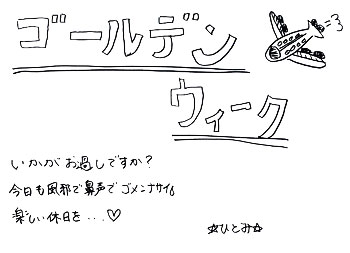 ゴールデン
ウィーク
いかがお過しですか？
今日も風邪で鼻声でゴメンナサイ。
楽しい休日を...♡
☆ひとみ☆